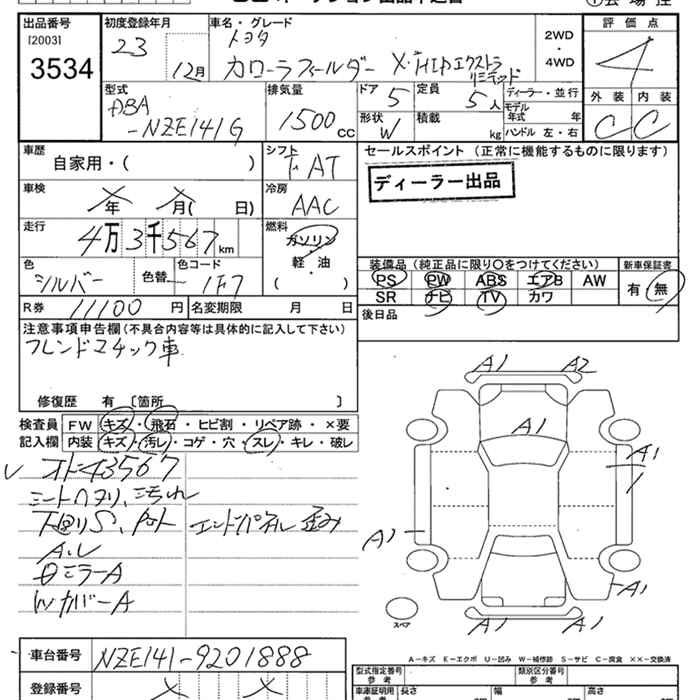 出品番号 初度登録年月 車名・グレード 評価点
[2003] 23 トヨタ 2WD
3534 12月 カローラフィールダー X・HIDエクストラ ・ 4
リミテッド 4WD
型式 排気量 ドア 5 定員 5人 ディーラー・並行 外装 内装
DBA 1500cc モデル年式 年
-NZE141G 形状 W 積載 kg ハンドル 左・右 C C
車歴 シフト セールスポイント (正常に機能するものに限ります)
自家用・( ) AT ディーラー出品
車検 冷房
メ年 メ月( 日) AAC
走行 燃料
4万3千567km ガソリン
色 色替 色コード 軽・油
シルバー 1F7 ( )
装備品 (純正品に限り○をつけてください) 新車保証書
PS PW ABS エアB AW 有・無
SR ナビ TV カワ
R券 11100円 名変期限 月 日
後日品
注意事項申告欄 (不具合内容等は具体的に記入して下さい)
フレンドマチック車
修復歴 有 [箇所 ]
検査員 FW キズ・飛石・ヒビ割・リペア跡・×要
記入欄 内装 キズ・汚レ・コゲ・穴・スレ・キレ・破レ
43567
シートヘタリ、汚れ
下回りS、 エンドパネル歪み
ミラーA
WカバーA
A1 A2
A1
A1
A1
A1
A1 A1
スペア
A-キズ E-エクボ U-凹み W-補修跡 S-サビ C-腐食 ××-交換済
車台番号 NZE141-9201888
登録番号 メ メ
型式指定番号 類別区分番号
参考 参考
車庫証明用 長さ 幅 高さ